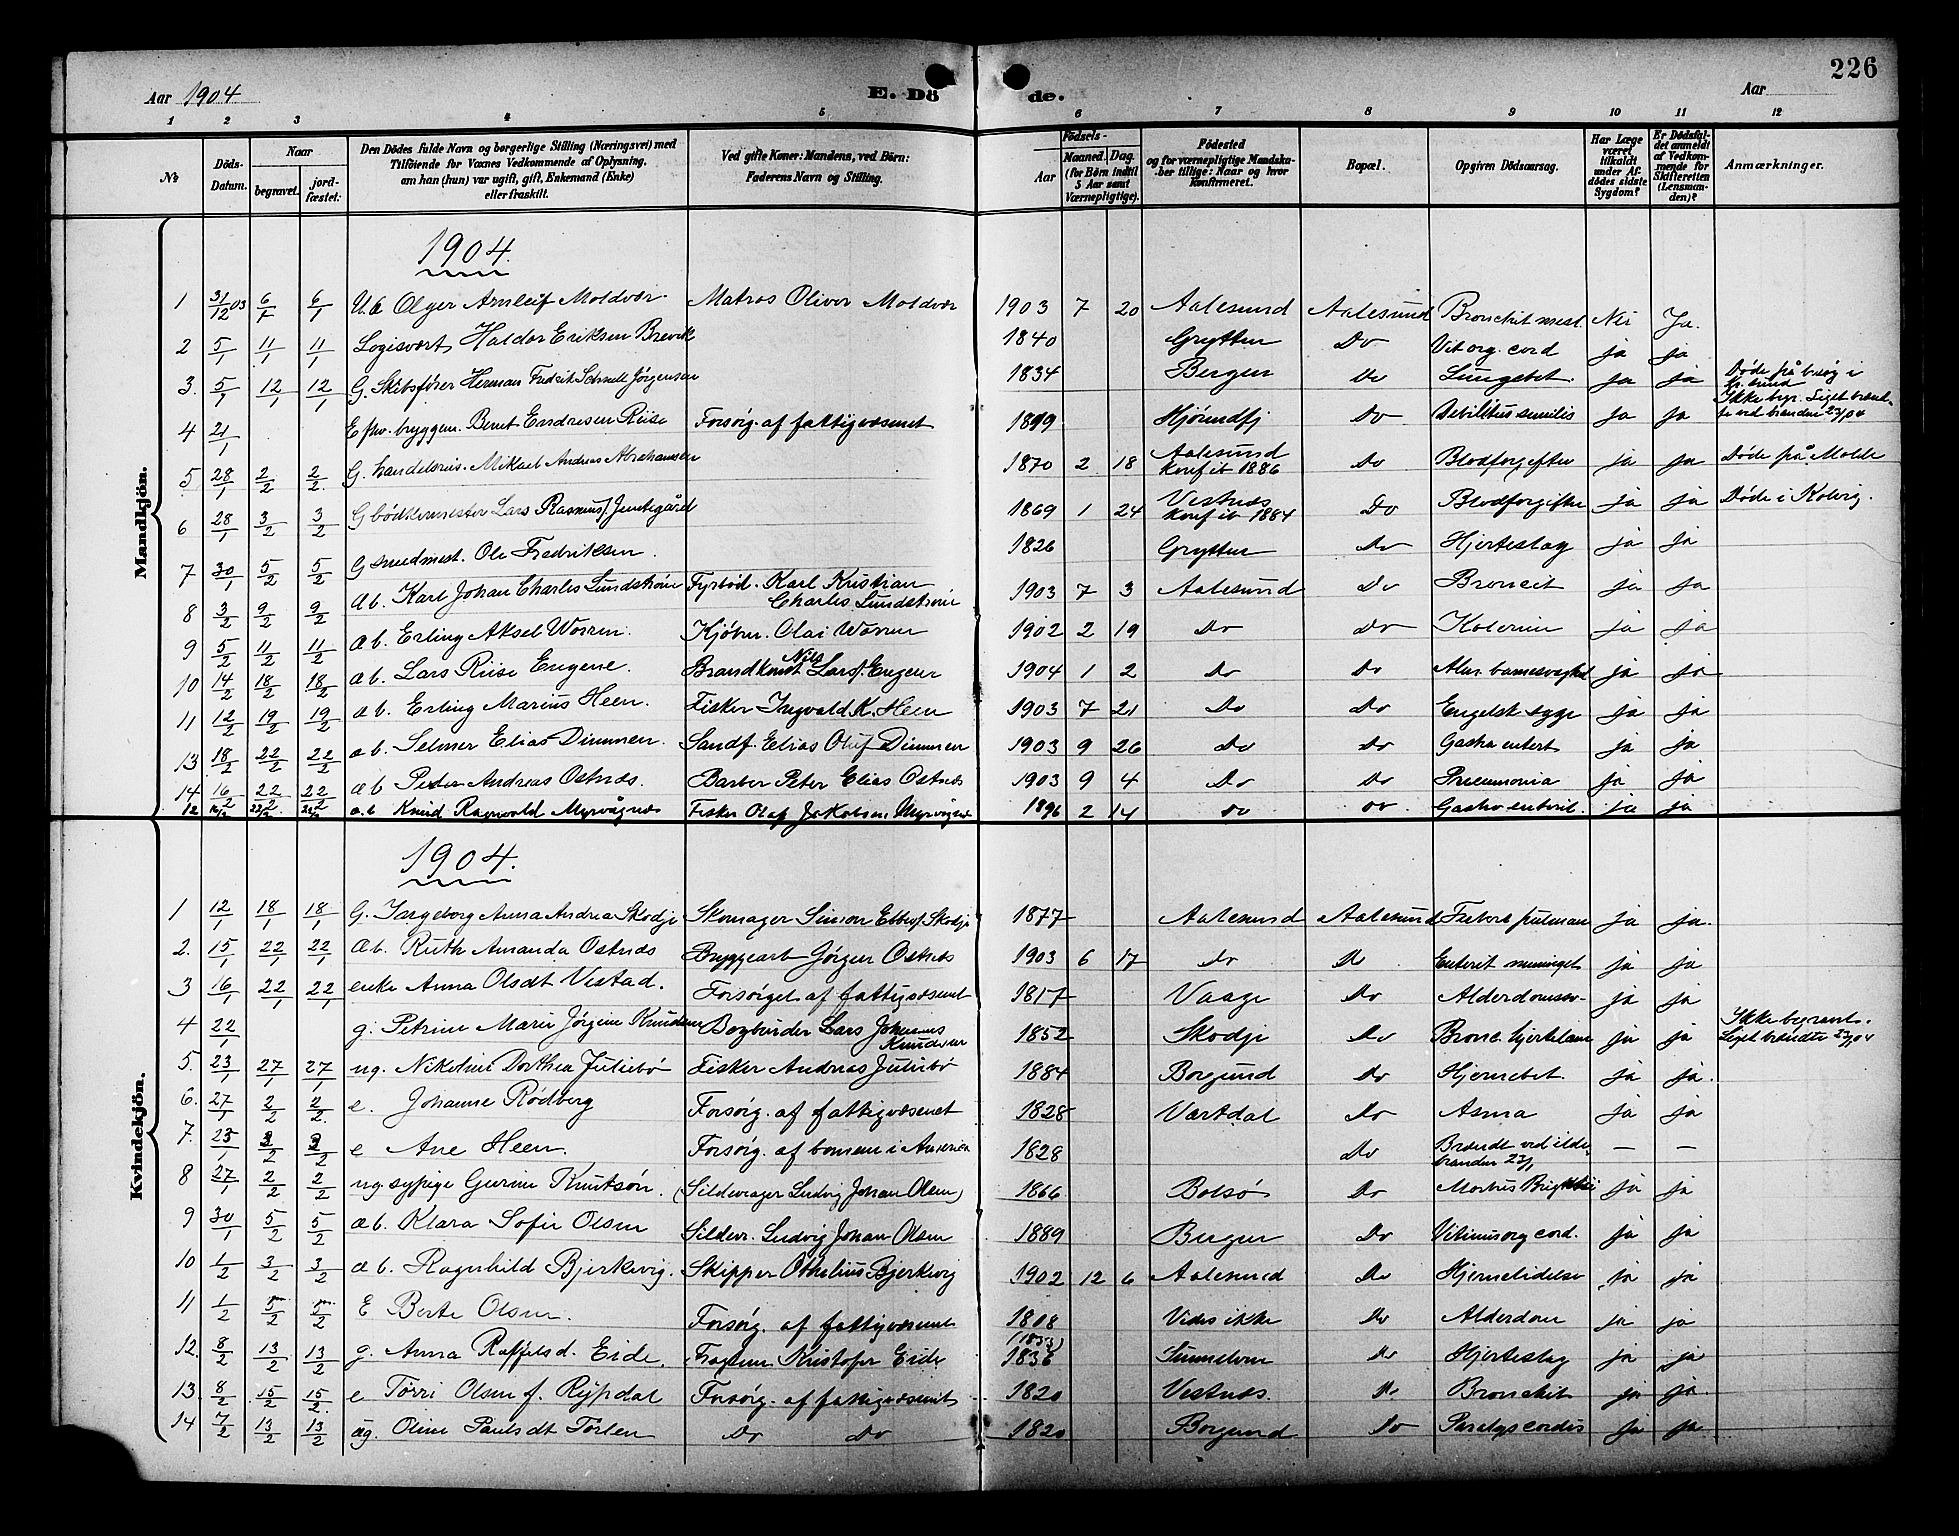 226
Aar 1904 E. Dö de. Aar
1 2 3 4 5 6 7 8 9 10 11 12
№ Döds-Datum. Naar begravet. jord-fæstet. Den Dödes fulde Navn og borgerlige Stilling (Næringsvei) med Tilföiende for Voxnes Vedkommende af Oplysning, om han (hun) var ugift, gift, Enkemand (Enke) eller fraskilt. Ved gifte Koner: Mandens, ved Börn: Faderens Navn og Stilling. Födsels- Aar Maaned. Dag. (for Börn indtil 5 Aar samt Værnepligtige). Födested og for værnepligtige Mandskaber tillige: Naar og hvor konfirmeret. Bopæl. Opgiven Dödsaarsag. Har Læge været tilkaldt under Afdödes sidste Sygdom? Er Dödsfaldet anmeldt af Vedkommende for Skifteretten (Lensmanden)? Anmærkninger.
Mandkjön.
1904.
1 31/12 03 6/1 6/1 U.æ Olger Arnleif Moldvær. Matros Oliver Moldvær 1903 7 20 Aalesund Aalesund Bronchit Nei Ja.
2 5/1 11/1 11/1 Logisvært Haldor Eriksen Brevik 1840 Grytten Do Vit. org. cord ja ja
3. 5/1 12/1 12/1 G. Skibsfører Herman Fredrik Schnell Jørgensen 1834 Bergen Do Lungebet. ja ja Døde på besøg i
4 21/1 Bernt Endresen Riise Forsørg. af fattigvæsenet 1819 Hjørundfj Do Debilitus senilis ja ja Ikke begr. Liget brændte ved branden 23/1 04
5 28/1 2/2 2/2 G. handelsreis. Mikael Andreas Abrahamsen 1870 2 18 Aalesund konf ib 1886 Do Blodforgiften ja ja Døde på Molde
6 28/1 3/2 3/2 G bødkermester Lars Rasmus J. Jemtegård 1869 1 24 Vestnæs konf ib 1884 Do Blodforgiften ja ja Døde i Kolvig.
7 30/1 5/2 5/2 G smedmest. Ole Fredriksen. 1826 Grytten Do Hjerteslag ja ja
8 3/2 9/2 9/2 æb. Karl Johan Charles Lundstrøm Fyrbød. Karl Kristian Charles Lundstrøm 1903 7 3 Aalesund Do Broncit ja ja
9 5/2 11/2 11/2 æb. Erling Aksel Worren. Kjøbm. Olai Worren 1902 2 19 Do Do Kolerine ja ja
10 14/2 18/2 18/2 æb. Lars Riise Engene. Brandkonst Nils Larsf. Engene 1904 1 2 Do Do Alm. barnesvaghed ja ja
11 12/2 19/2 19/2 æb. Erling Marius Heen. Fisker Ingvald K. Heen 1903 7 21 Do Do Engelsk syge ja ja
13 18/2 22/2 22/2 æb. Selmer Elias Dimmen. Sandf. Elias Oluf Dimmen 1903 9 26 Do Do Gastro entert ja ja
14 16/2 22/2 22/2 æb Peder Andreas Ostnæs. Barber Peter Elias Ostnæs 1903 9 4 Do Do Pneumonia ja ja
12 16/2 22/2 22/2 æ.b Knud Ragnvald Myrvågnes Fisker Olaf Jakobsen Myrvågnes 1896 2 14 do do Gastro enterit. ja ja
Kvindekjön.
1904.
1 12/1 18/1 18/1 G. Ingeborg Anna Andrea Skodje Skomager Simon Ebbesf. Skodje 1877 Aalesund Aalesund ja ja.
2. 15/1 22/1 22/1 æb. Ruth Amanda Ostnæs Byggearb Jørgen Ostnæs 1903 6 17 do Do Enterit meninget ja ja
3 16/1 22/1 22/1 enke Anna Olsdt Vestad. Forsørget af fattigvæsenet 1817 Vaage Do Alderdomssv. ja ja
4 22/1 g. Petrine Marie Jørgine Knudsen Bogbinder Lars Johannes Knudsen 1852 Skodje Do Bronc. hjertelam ja ja Ikke begravet. Liget brændte 23/1 04
5. 23/1 27/1 27/1 ug. Nikoline Dorthea Juliebø Fisker Andreas Juliebø 1884 Borgund Do Hjernebet. ja ja.
6. 27/1 2/2 2/2 e. Johanne Rødberg Forsørg. af fattigvæsenet 1828 Vartdal Do Asma ja ja
7. 23/1 3/2 3/2 e Ane Heen. Forsørg. af sønnen i Amerika 1828 Do Brændt ved ildebranden 23/1 — —
8 27/1 2/2 2/2 ug. sypige Gurine Knutsøn. (Sildevrager Ludvig Johan Olsen) 1866 Bolsø Do Morbus Brightii ja ja
9 30/1 5/2 5/2 æb. Klara Sofie Olsen Sildevr. Ludvig Johan Olsen 1889 Bergen Do Vitium org cord. ja ja
10 1/2 3/2 3/2 æb. Ragnhild Bjerkevig. Skipper Othelius Bjerkvig 1902 12 6 Aalesund Do Hjernelidelse ja ja
11 1/2 5/2 5/2 E Berte Olsen. Forsørg. af fattigvæsenet 1818 Vides ikke Do Alderdom ja ja
12. 8/2 13/2 13/2 g. Anna Raffelsd. Eide. Kristofer Eide (1833) 1836 Sunnelven Do Hjerteslag ja ja
13. 8/2 15/2 15/2 e Tørri Olsen f. Rypdal Forsørg. af fattigvæsenet 1820 Vestnæs. Do Bronchit ja ja.
14 7/2 13/2 13/2 ug. Oline Paulsdt Tørlen Do Do 1820 Borgund Do Paralys cordis ja ja